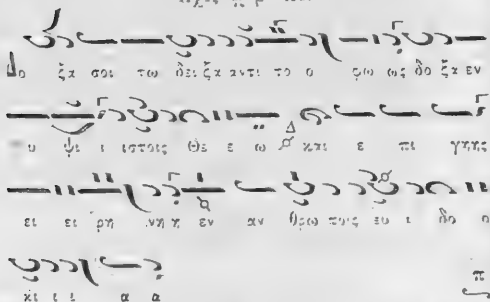 Δο ξα σοι τω δει ξα αντι το ο φω ως δο ξα εν
υ ψι ι ιστοις Θε ε ω και ε πι γης
ει ει ρη νη η εν αν θρω ποις ευ ι δο ο
κι ι ι α α
π